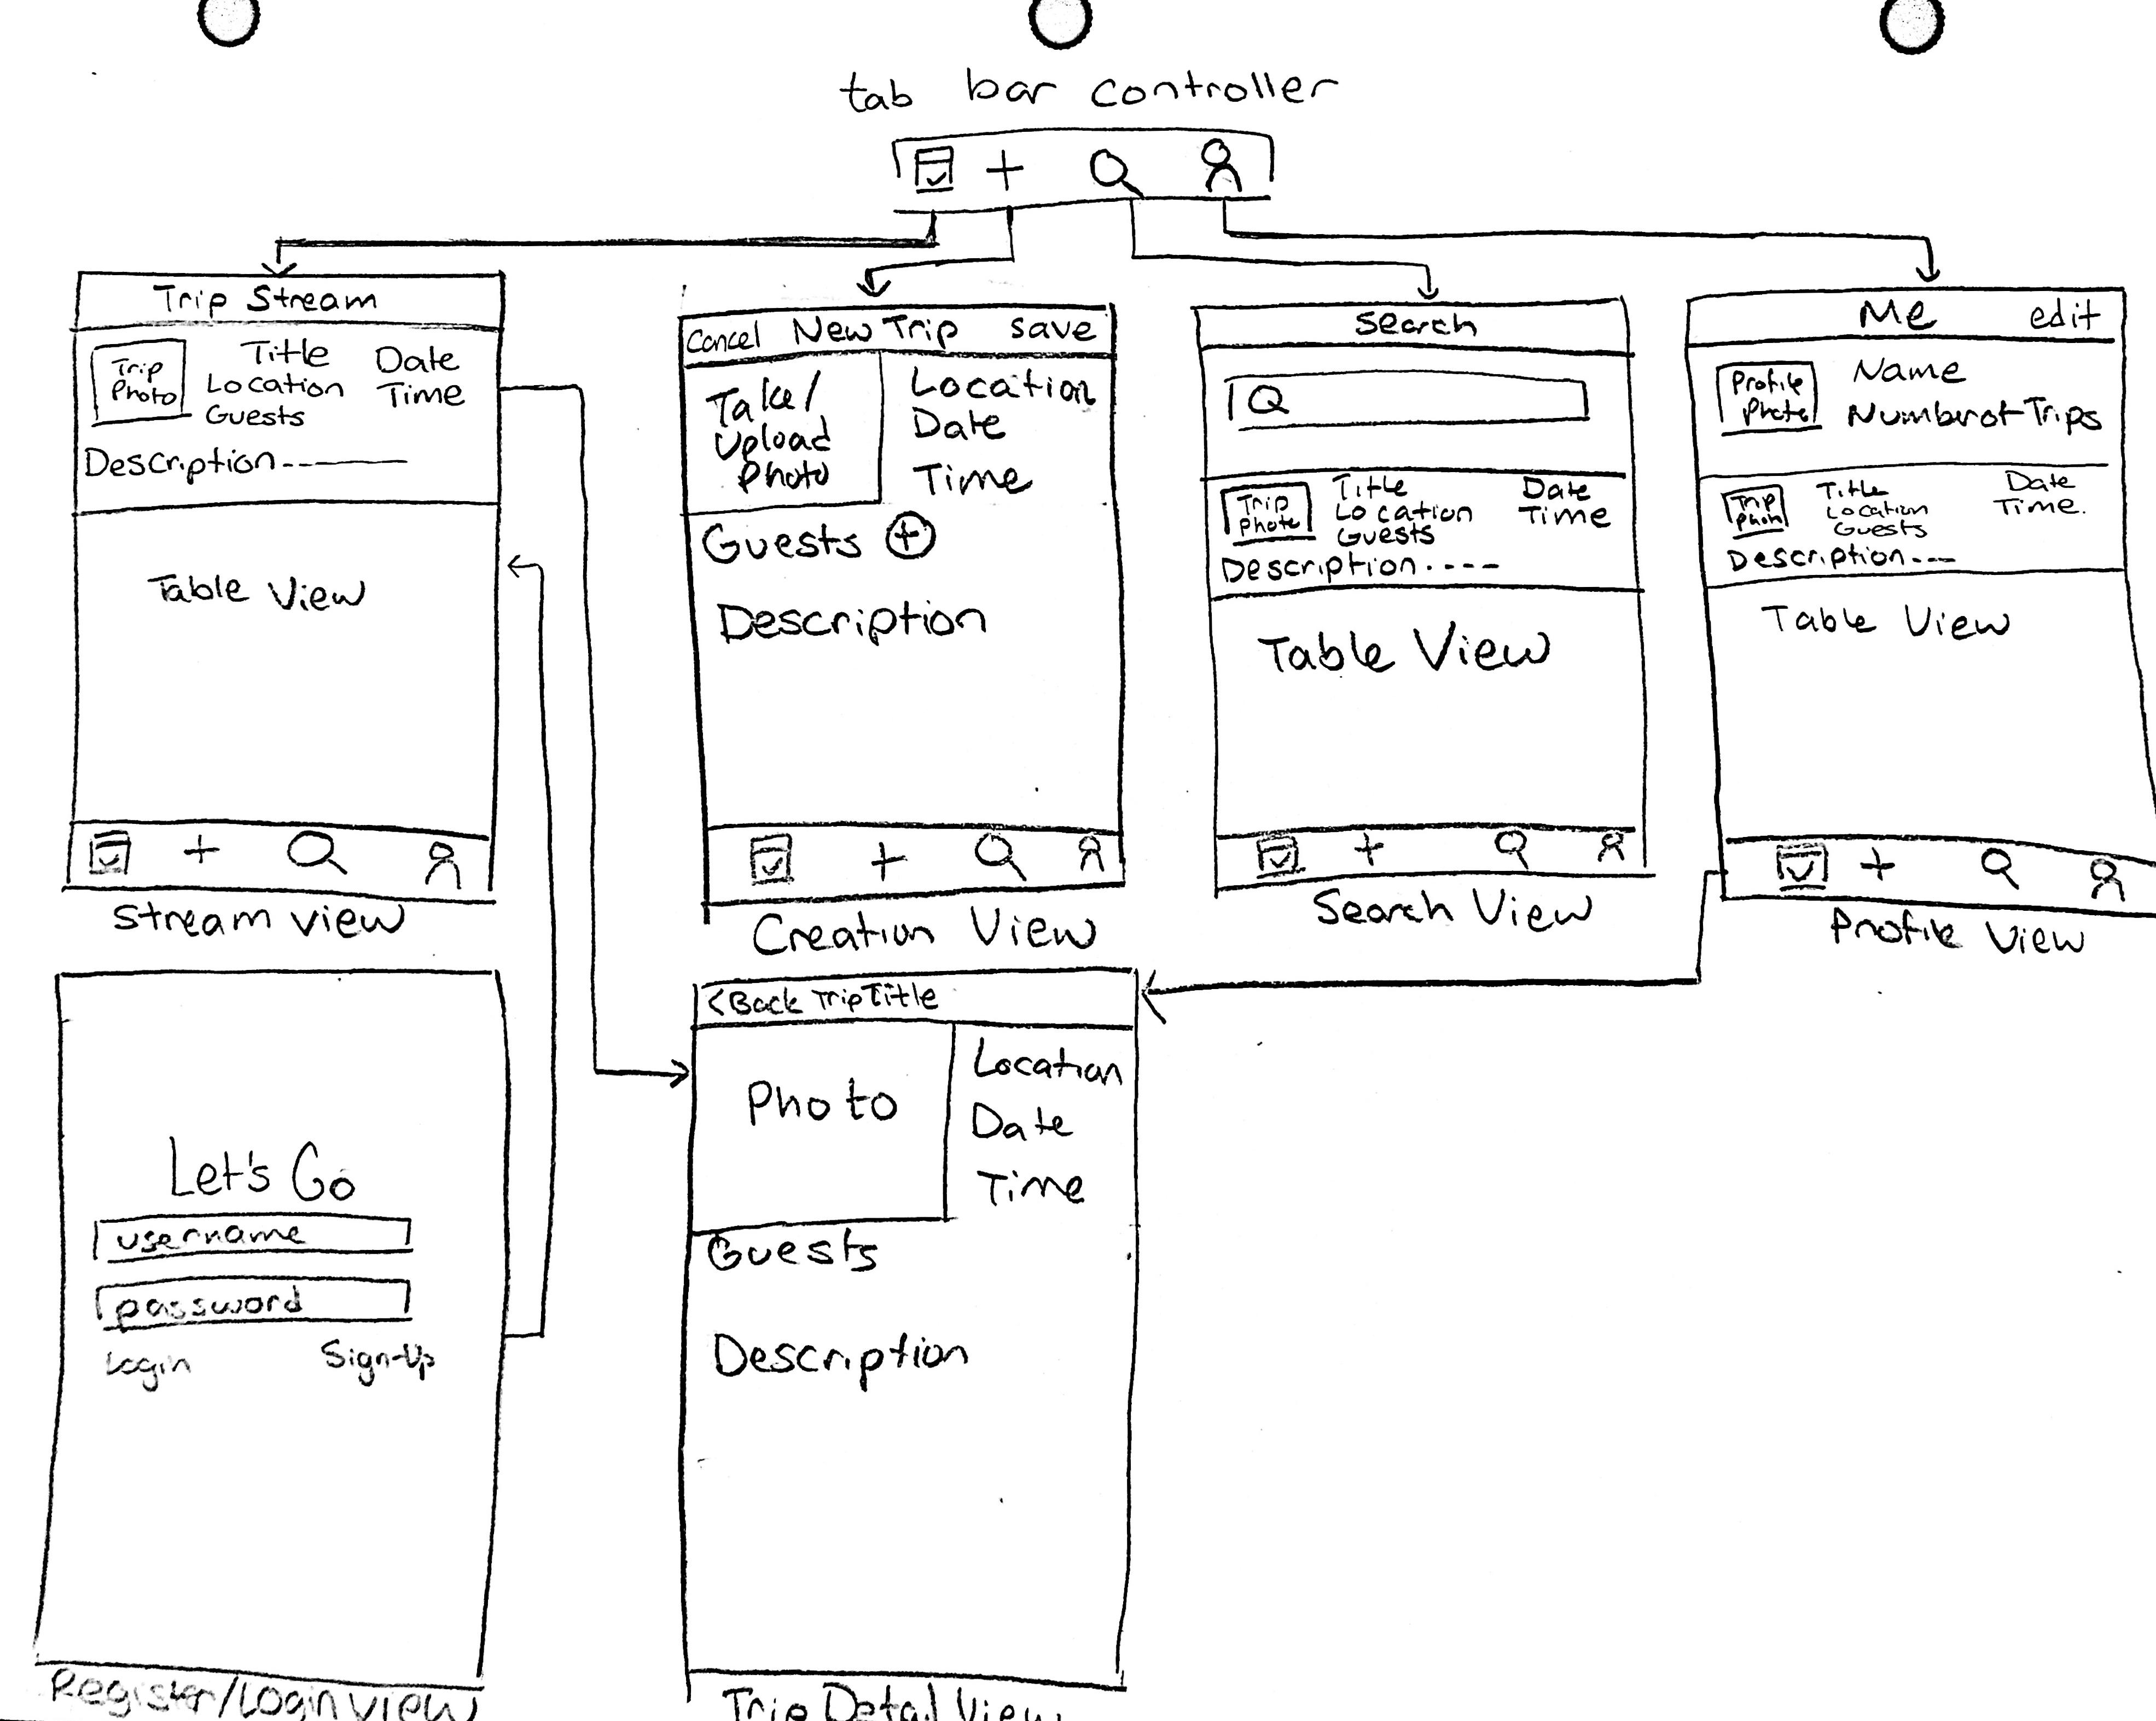 tab bar controller
Trip Stream
Trip
Photo
Title
Location
Guests
Date
Time
Description
Table View
Stream view
Cancel New Trip save
Take/
Upload
Photo
Location
Date
Time
Guests +
Description
Creation View
Search
Trip
Photo
Title
Location
Guests
Date
Time
Description
Table View
Search View
Me edit
Profile
Photo
Name
Number of Trips
Trip
Photo
Title
Location
Guests
Date
Time.
Description
Table View
Profile View
Let's Go
username
password
Login Sign-Up
Register/Login View
<Back Trip Title
Photo
Location
Date
Time
Guests
Description
Trip Detail View